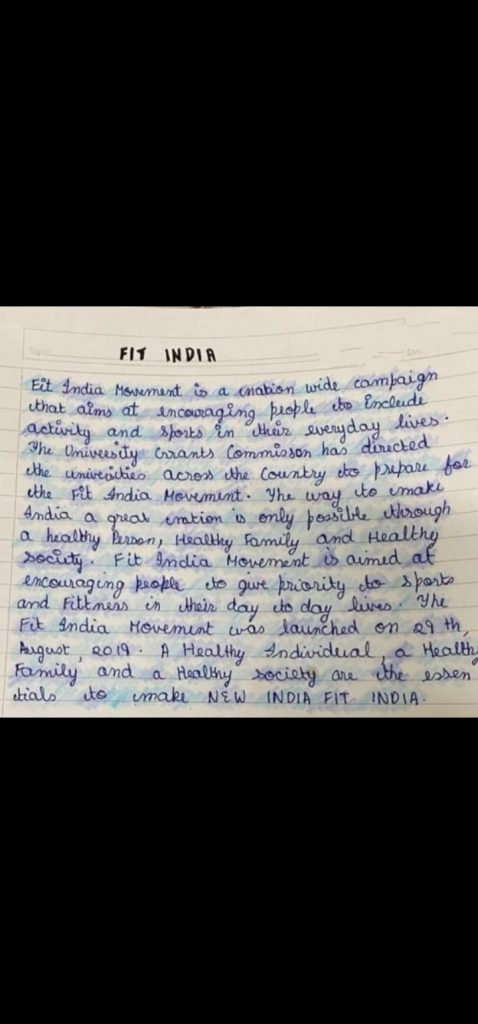 FIT INDIA
Fit India Movement is a nation wide campaign
that aims at encouraging people to include
activity and sports in their everyday lives.
The University Grants Commisson has directed
the univeisities across the Country to prepare for
the Fit India Movement. The way to make
India a great nation is only possible through
a healthy Person, Healthy Family and Healthy
society. Fit India Movement is aimed at
encouraging people to give priority to sports
and Fittness in their day to day lives. The
Fit India Movement was launched on 29 th,
August, 2019. A Healthy Individual, a Healthy
Family and a Healthy society are the essen
tials to make NEW INDIA FIT INDIA.